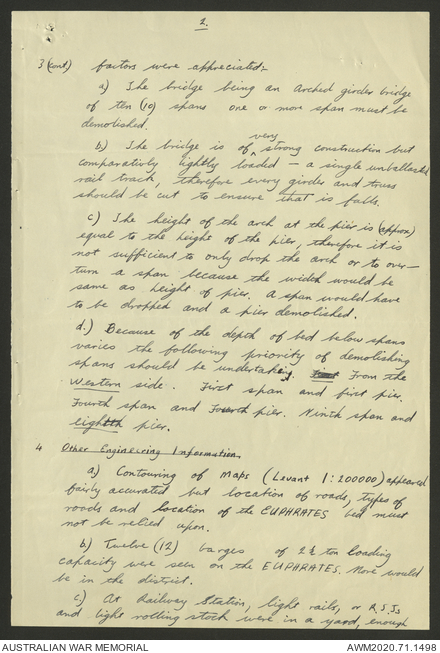 2.
3 (cont) factors were appreciated:-
a) The bridge being an Arched girder bridge
of ten (10) spans one or more span must be
demolished.
b) The bridge is of very strong construction but
comparativly lightly loaded — a single unballasted
rail track, therefore every girder and truss
should be cut to ensure that is falls.
c) The height of the arch at the pier is (approx)
equal to the height of the pier, therefore it is
not sufficient to only drop the arch or to over-
turn a span because the width would be
same as height of pier. A span would have
to be dropped and a pier demolished.
d.) Because of the depth of bed below spans
varies the following priority of demolishing
spans should be undertaking. From the
Western side. First span and first pier.
Fourth span and Fourth pier. Ninth span and
eighth pier.
4 Other Engineering Information.
a) Contouring of Maps (Levant 1:200000) appeared
fairly accurated but location of roads, types of
roads and location of the EUPHRATES bed must
not be relied upon.
b) Twelve (12) barges of 2½ ton loading
capacity were seen on the EUPHRATES. More would
be in the district.
c.) At Railway Station, light rails, or R.S.Js
and light rolling stock were in a yard, enough
AUSTRALIAN WAR MEMORIAL
AWM2020.71.1498